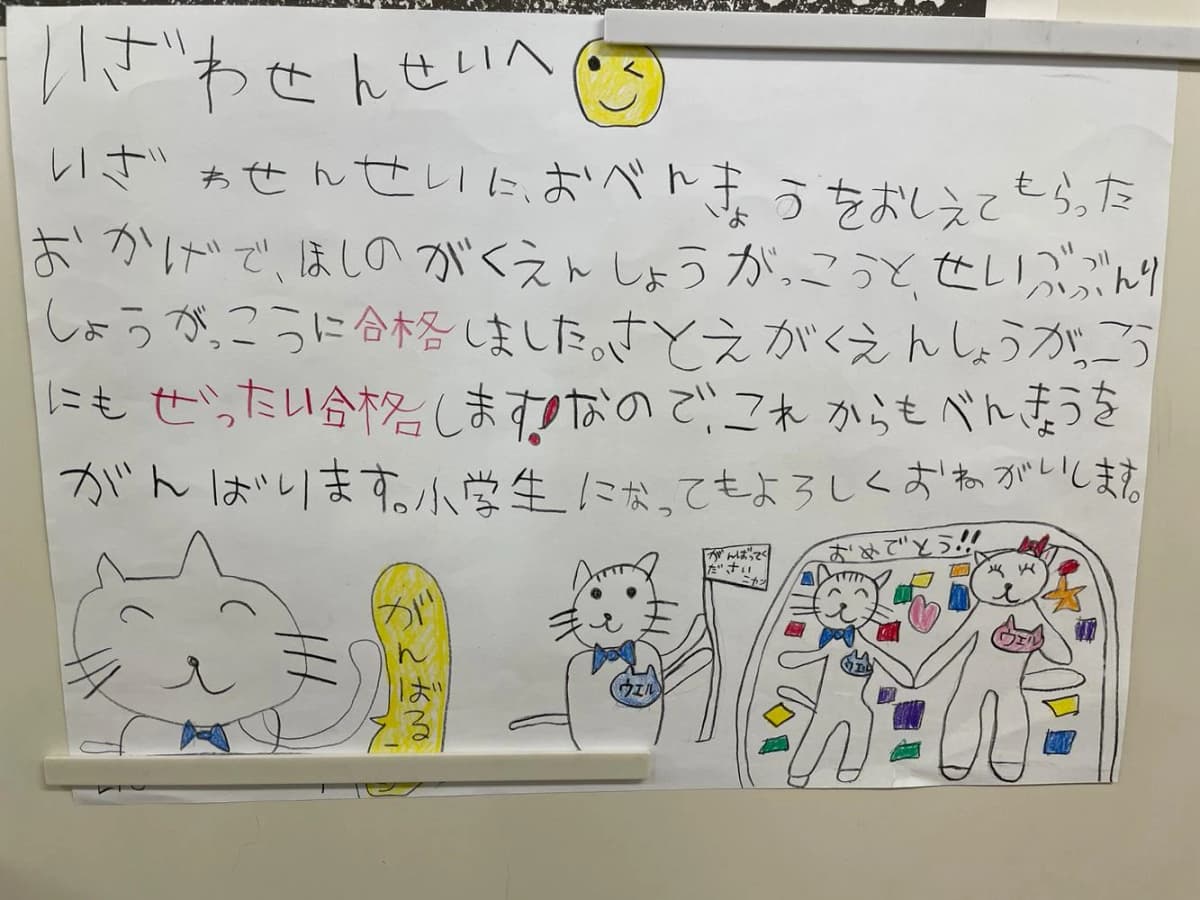 いざわせんせいへ
いざわせんせいに、おべんきょうをおしえてもらった
おかげで、ほしのがくえんしょうがっこうと、せいぶぶんり
しょうがっこうに合格しました。さとえがくえんしょうがっこう
にもぜったい合格します!なので、これからもべんきょうを
がんばります。小学生になってもよろしくおねがいします。
がんばる
がんばってく
ださい
ニャン
ウエル
おめでとう!!
ウエル
ウエル